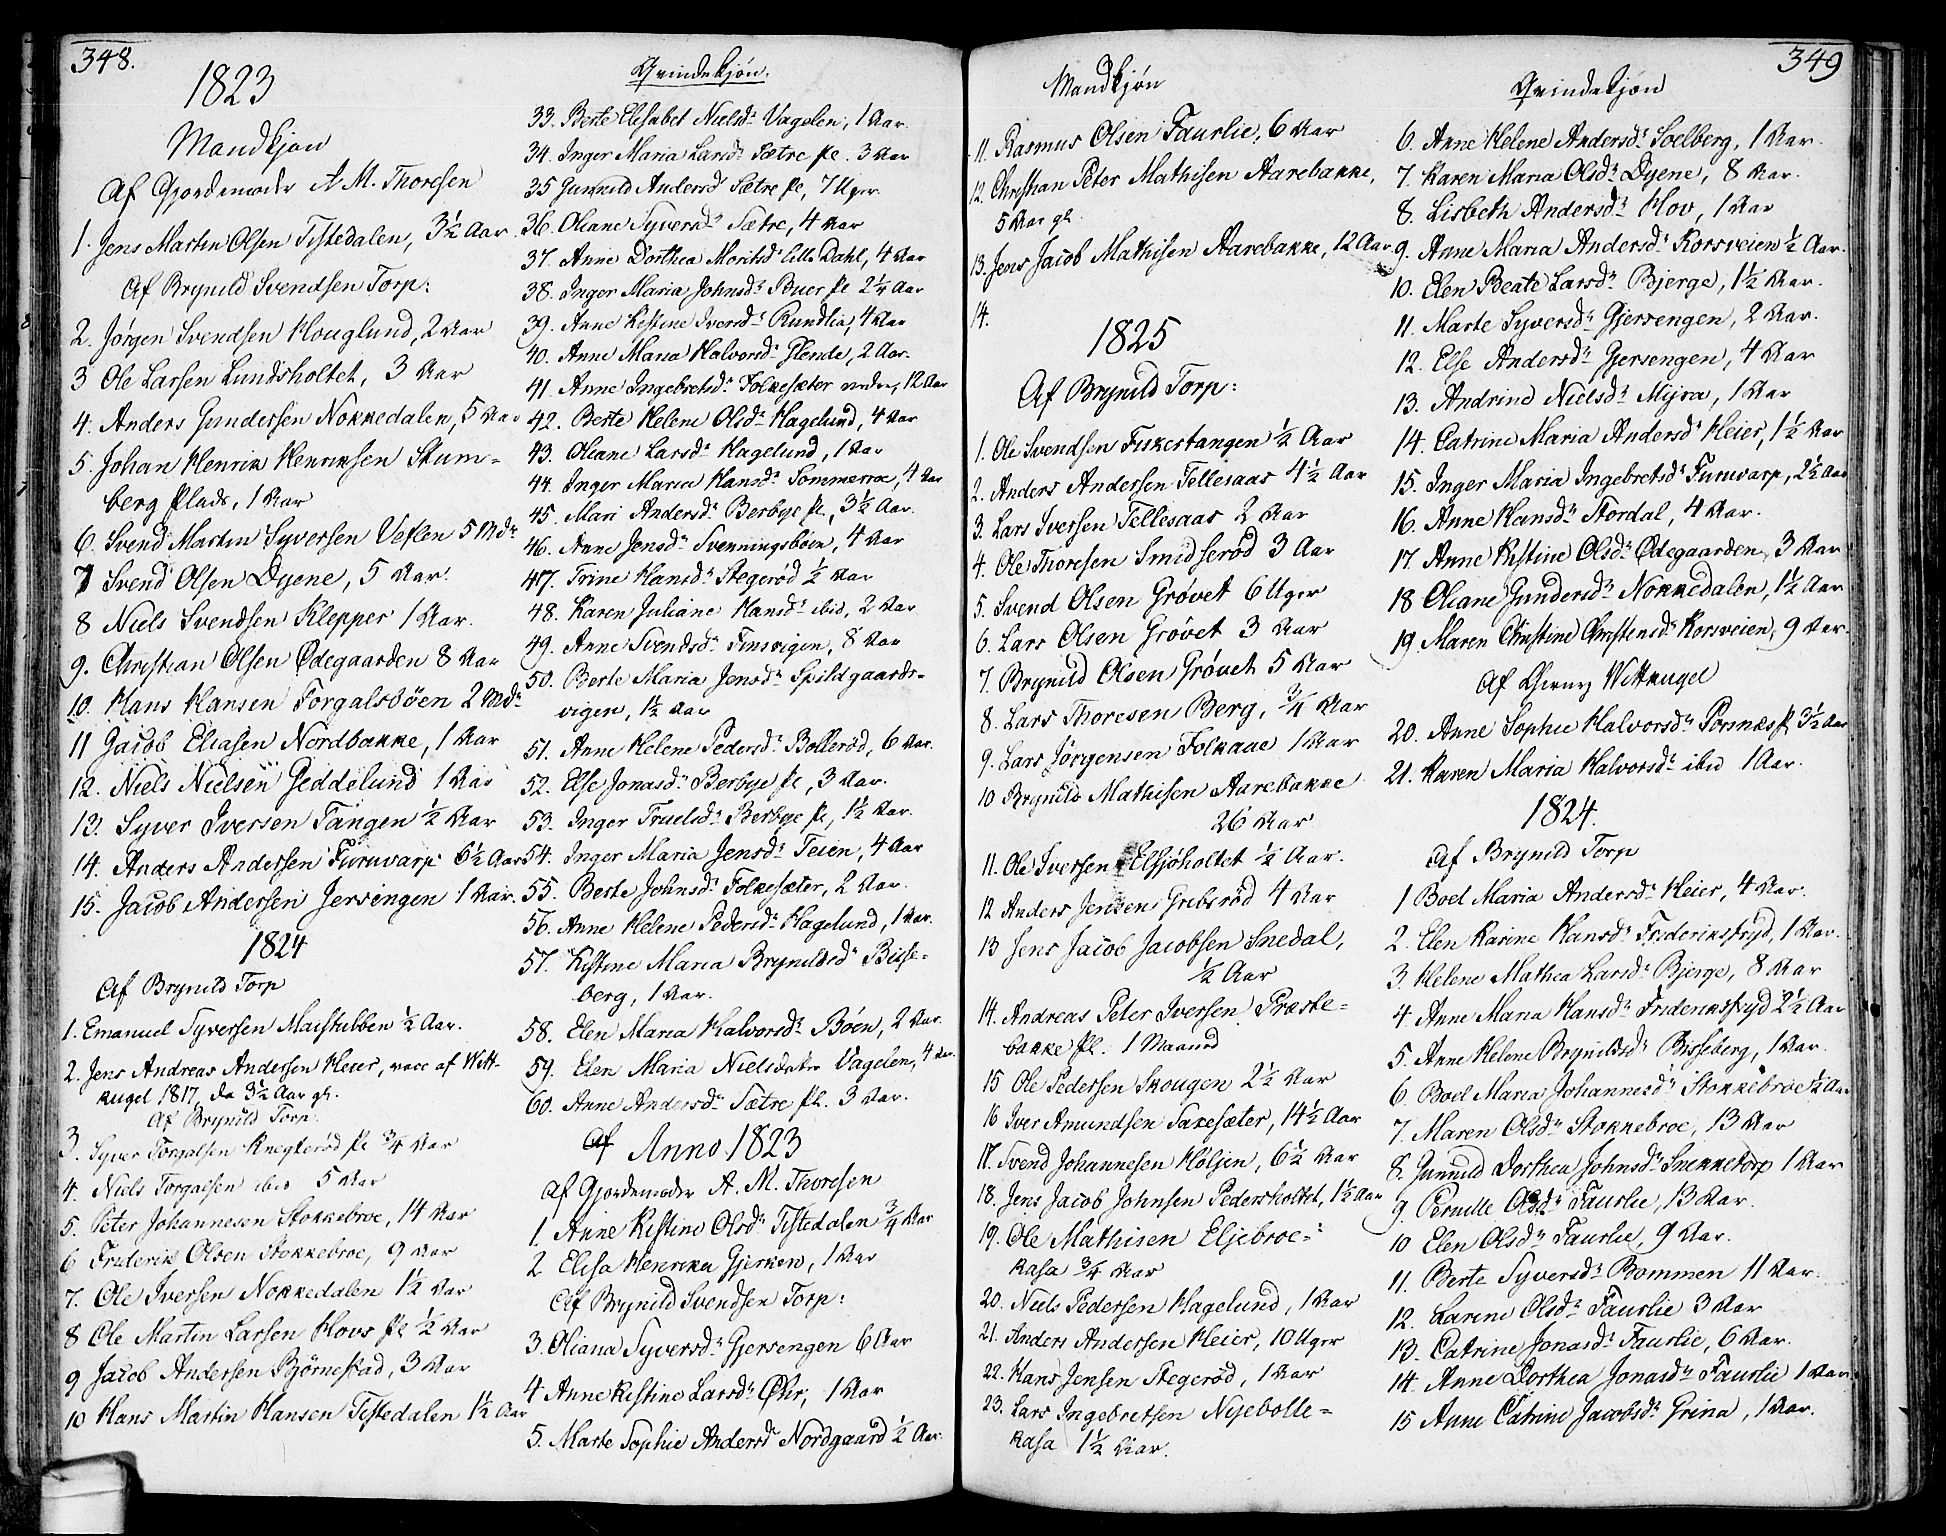 348.
1823
Mandkjøn
Af Gjordemoder A M. Thoresen
1. Jens Martin Olsen Tistedalen, 3½ Aar
Af Brynild Svendsen Torp:
2. Jørgen Svendsen Houglund, 2 Aar
3 Ole Larsen Lundsholtet, 3 Aar
4. Anders Gundersen Nokkedalen, 5 Aar
5. Johan Henrik Henriksen Stum-
berg Plads, 1 Aar
6. Svend Martin Syversen Veslen 5 Mdr
7 Svend Olsen Dyene, 5 Aar.
8 Niels Svendsen Klepper 1 Aar.
9. Christian Olsen Ødegaarden 8 Aar
10. Hans Hansen Torgalsbøen 2 Mdr
11 Jacob Eliasen Nordbakke, 1 Aar
12. Niels Nielsen Geddelund 1 Aar
13. Syver Iversen Tangen ½ Aar
14. Anders Andersen Furuvarp 6½ Aar
15. Jacob Andersen Jersengen 1 Aar.
1824
Af Brynild Torp
1. Emanuel Syversen Maistubben ½ Aar.
2. Jens Andreas Andersen Heier, vacc af Witt-
kugel 1817, da 3½ Aar gl.
Af Brynild Torp.
3. Syver Torgalsen Knegterød pl ¾ Aar
4. Niels Torgalsen ibid 5 Aar
5. Peter Johannesen Stokkebroe, 14 Aar
6 Friderik Olsen Stokkebroe, 9 Aar
7. Ole Iversen Nokkedalen 1½ Aar
8 Ole Martin Larsen Hovs pl ½ Aar
9 Jacob Andersen Bjørnestad, 3 Aar
10 Hans Martin Hansen Tistedalen 1½ Aar
Qvindekjøn.
33. Berte Elisabet Nielsdr Vagelen, 1 Aar
34. Inger Maria Larsdr Sætre pl. 3 Aar
35 Gunnild Andersd Sætre pl, 7 Uger
36. Oliane Syversdr Sætre, 4 Aar
37. Anne Dorthea Moritsdr Lille Dahl, 4 Aar
38. Inger Maria Johnsdr Buer pl 2¼ Aar
39. Anne Kistine Iversdr Rundlia, 4 Aar
40. Anne Maria Halvorsdr Glende, 2 Aar.
41. Anne Ingebretsdr Folkesæter nedre, 12 Aar
42. Berte Helene Olsdr Hagelund, 4 Aar
43. Oliane Larsdr Hagelund, 1 Aar
44. Inger Maria Hansdr Sommerroe, 4 Aar
45. Mari Andersdr Berbye pl, 3½ Aar.
46. Anne Jensdr Svenningsbøen, 4 Aar
47. Trine Hansdr Stegerød ½ Aar
48. Karen Juliane Hansdr ibid, 2 Aar
49. Anne Svendsdr Finsvigen, 8 Aar
50. Berte Maria Jensdr Spildgaards-
vigen, 1½ Aar
51. Anne Helene Pedersdr Bollerød, 6 Aar.
52. Else Jonasdr Berbye pl, 3 Aar.
53. Inger Truelsdr Berbye pl, 1½ Aar.
54. Inger Maria Jensdr Teien, 4 Aar
55. Berte Johnsdr Folkesæter, 2 Aar.
56. Anne Helene Pedersdr Hagelund, 1 Aar.
57. Kistine Maria Brynildsdr Bisse-
berg, 1 Aar.
58. Elen Maria Halvorsdr Bøen, 2 Aar
59. Elen Maria Nielsdatr Vagelen, 4 Aar.
60. Anne Andersdr Sætre pl. 3 Aar.
Af Anno 1823
Af Gjordemoder A. M. Thoresen
1. Anne Kistine Olsdr Tistedalen ¾ Aar
2 Elisa Henrika Gjerken, 1 Aar
Af Brynild Svendsen Torp:
3. Oliana Syversdr Gjersengen 6 Aar
4 Anne Kistine Larsdr Øhr, 1 Aar
5. Marte Sophie Andersd Nordgaard ½ Aar.
Mandkjøn
11. Rasmus Olsen Faurlie, 6 Aar
12. Christian Peter Mathisen Aarebakke,
5 Aar gl.
13. Jens Jacob Mathisen Aarebakke, 12 Aar
14.
1825
Af Brynild Torp:
1. Ole Svendsen Fiskestangen ½ Aar
2. Anders Andersen Tellesaas 4½ Aar
3. Lars Iversen Tellesaas 2 Aar
4. Ole Thoresen Smidserød 3 Aar
5. Svend Olsen Grøvet 6 Uger
6. Lars Olsen Grøvet 3 Aar
7. Brynild Olsen Grøvet 5 Aar
8. Lars Thoresen Berg, ¾ Aar
9. Lars Jørgensen Folkaae 1 Aar
10 Brynild Mathisen Aarebakke
26 Aar
11. Ole Iversen Elsjøholtet ½ Aar.
12 Anders Jensen Grebsrød 4 Aar
13 Jens Jacob Jacobsen Snedal,
½ Aar
14. Andreas Peter Iversen Præste-
bakke pl. 1 Maaned
15 Ole Pedersen Skougen 2½ Aar
16 Iver Amundsen Saxesæter, 14½ Aar
17. Svend Johannesen Høljen, 6½ Aar
18. Jens Jacob Johnsen Pedersholtet, 1½ Aar
19. Ole Mathisen Eljebroe-
kasa ¾ Aar
20. Niels Pedersen Hagelund, 1 Aar
21. Anders Andersen Heier, 10 Uger
22. Hans Jensen Stegerød, 1 Aar
23. Lars Ingebretsen Nyebolle-
kasa 1½ Aar.
349
Qvindekjøn
6. Anne Helene Andersdr Soelberg, 1 Aar.
7. Karen Maria Olsdr Dyene, 8 Aar.
8. Lisbeth Andersdr Hov, 1 Aar
9. Anne Maria Andersdr Korsveien ½ Aar.
10. Elen Beate Larsdr Bjerge, 1½ Aar.
11. Marte Syversdr Gjersengen, 2 Aar.
12. Else Andersdr Gjersengen, 4 Aar
13. Andrine Nielsdr Myra, 1 Aar
14. Catrine Maria Andersdr Heier, 1½ Aar
15. Inger Maria Ingebretsdr Furuvarp, 2½ Aar
16. Anne Hansdr Stordal, 4 Aar.
17. Anne Kistine Olsdr Ødegaarden, 3 Aar
18 Oliane Gundersdr Nokkedalen, 1½ Aar
19. Maren Christine Christensdr Korsveien, 9 Aar.
Af Wittkugel
20. Anne Sophie Halvorsdr Porsnæs pl 3½ Aar
21. Karen Maria Halvorsdr ibid 1 Aar.
1824.
Af Brynild Torp
1 Boel Maria Andersdr Heier, 4 Aar.
2. Elen Karine Hansdr Frideriksfryd, 1 Aar.
3. Helene Mathea Larsdr Bjerge, 8 Aar
4. Anne Maria Hansdr Frideriksfryd 2½ Aar
5. Anne Helene Brynildsdr Bisseberg, 1 Aar.
6. Boel Maria Johannesdr Stokkebroe ½ Aar
7. Maren Olsdr Stokkebroe, 13 Aar
8. Gunnild Dorthea Johnsdr Snekketorp 1 Aar
9. Pernille Olsdr Faurlie, 13 Aar.
10 Elen Olsdr Faurlie, 9 Aar.
11. Berte Syversdr Bommen 11 Aar.
12. Karine Olsdr Faurlie 3 Aar
13. Catrine Jonasdr Faurlie, 6 Aar.
14. Anne Dorthea Jonasdr Faurlie 1 Aar
15 Anne Catrine Jacobsdr Grina, 1 Aar.